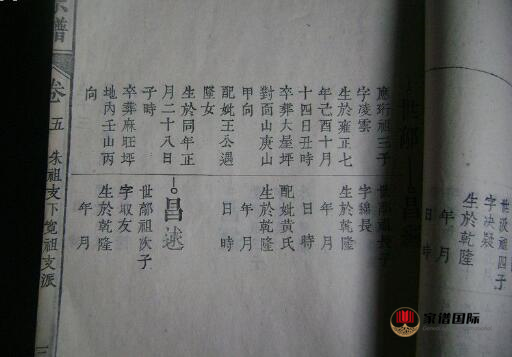 世汲祖四子
字決疑
生於乾隆
年 月
日 時
世郁
應珩祖三子
字凌雲
生於雍正七
年己酉十月
十四日丑時
卒葬大屋坪
對面山庚山
甲向
配妣王公遇
墜女
生於同年正
月二十八日
子時
卒葬麻旺坪
地內壬山丙
向
昌
世郁祖長子
字綿長
生於乾隆
年 月
日 時
配妣黃氏
生於乾隆
年 月
日 時
昌越
世郁祖次子
字取友
生於乾隆
年 月
宗譜
卷五
朱祖支下寬祖支派
家谱国际